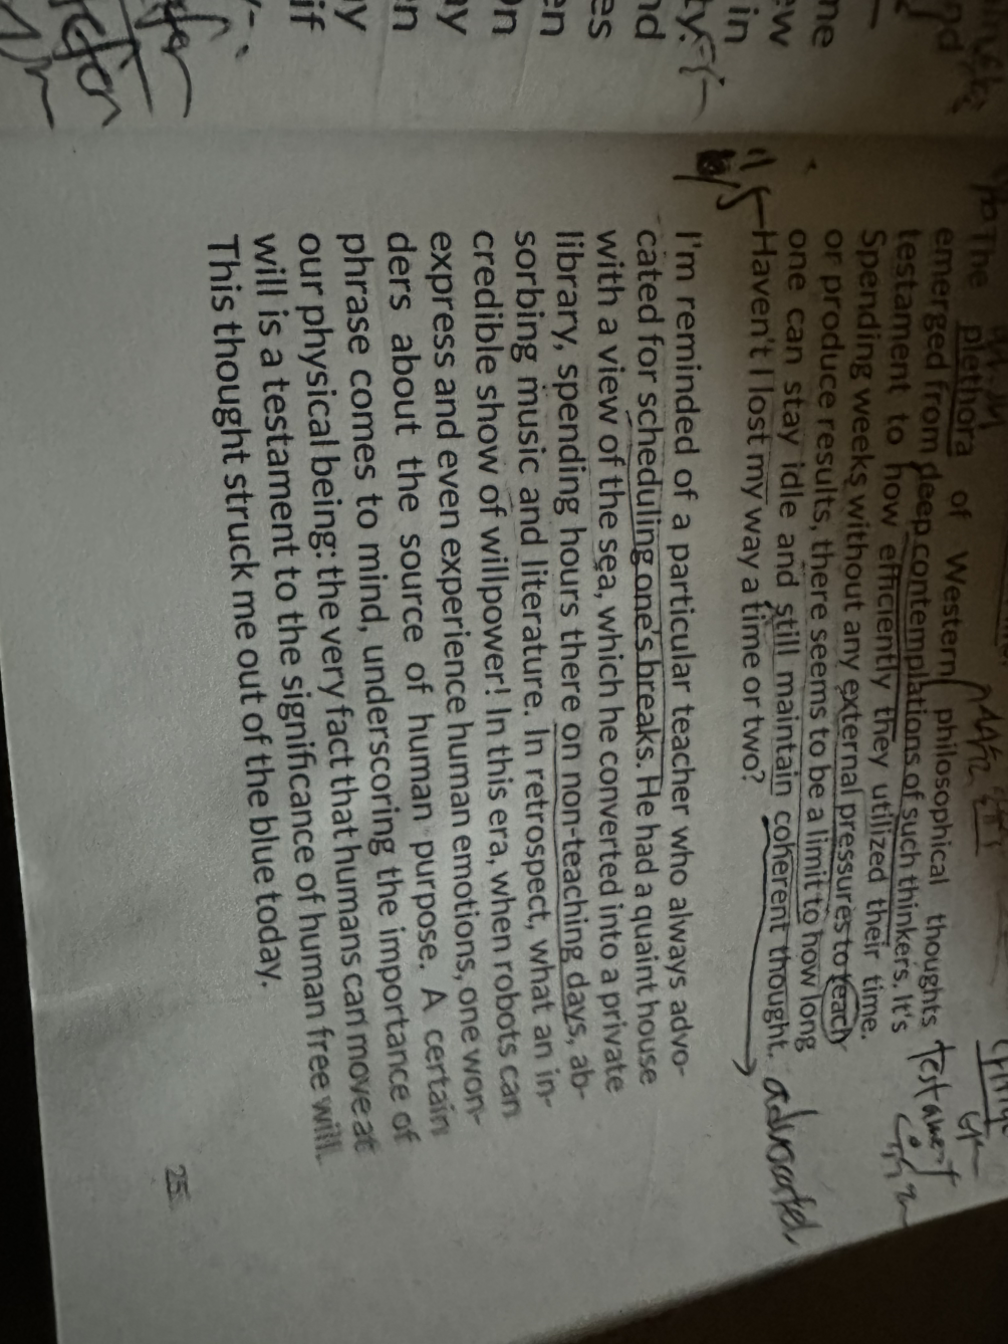 The plethora of Western philosophical thoughts
emerged from deep contemplations of such thinkers. It's
testament to how efficiently they utilized their time.
Spending weeks without any external pressures to teach
or produce results, there seems to be a limit to how long
one can stay idle and still maintain coherent thought.
Haven't I lost my way a time or two?
I'm reminded of a particular teacher who always advo-
cated for scheduling one's breaks. He had a quaint house
with a view of the sea, which he converted into a private
library, spending hours there on non-teaching days, ab-
sorbing music and literature. In retrospect, what an in-
credible show of willpower! In this era, when robots can
express and even experience human emotions, one won-
ders about the source of human purpose. A certain
phrase comes to mind, underscoring the importance of
our physical being: the very fact that humans can move at
will is a testament to the significance of human free will.
This thought struck me out of the blue today.
25
testament
advocated
me
ew
in
ty.
nd
es
en
On
ay
en
y
if